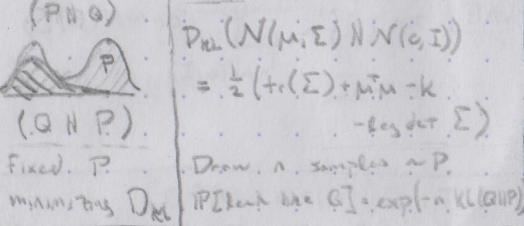 (P ‖ Q)
P
(Q ‖ P)
Fixed P
minimizing D_KL
D_KL(N(μ, Σ) ‖ N(0, I))
= 1/2 (tr(Σ) + μᵀμ - k
- log det Σ)
Draw n samples ~ P.
P[look like Q] ≈ exp(-n KL(Q‖P))